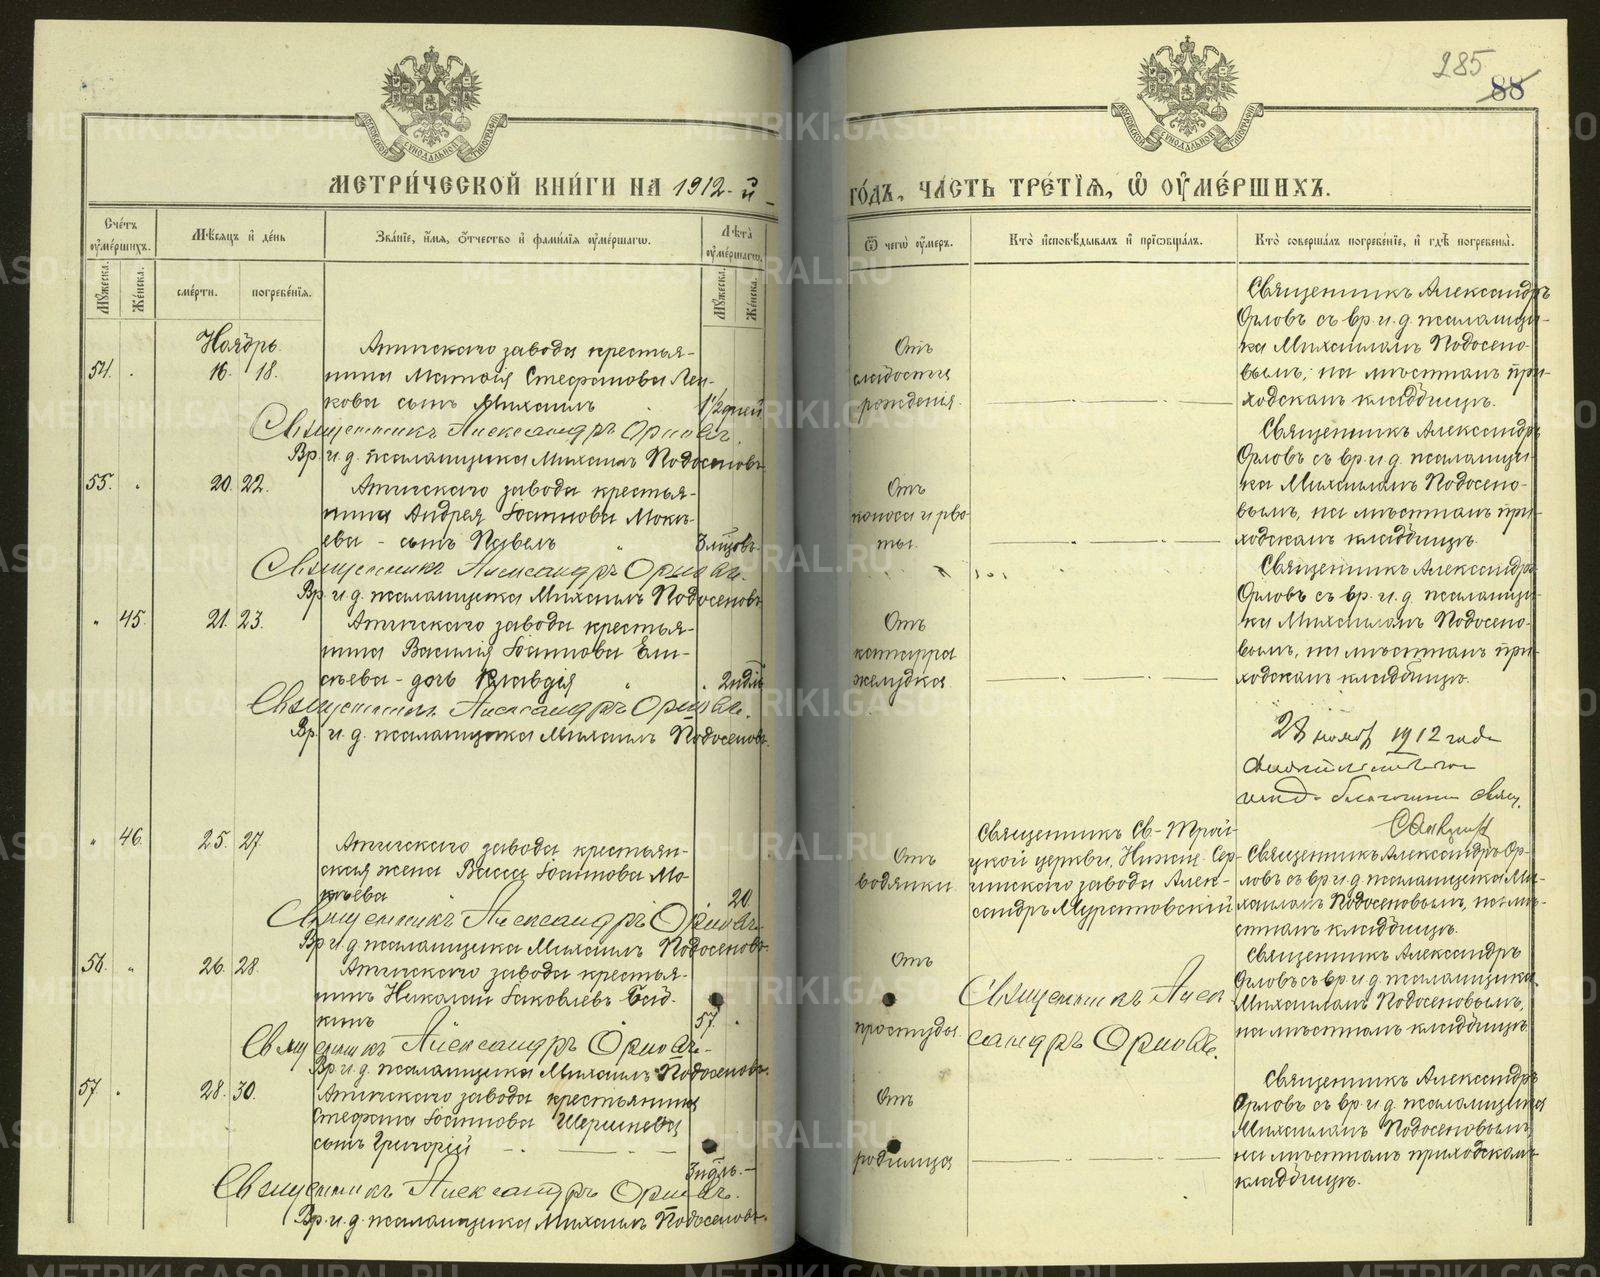 285
88
МОСКОВСКОЙ СѴНОДАЛЬНОЙ ТИПОГРАФІИ
МОСКОВСКОЙ СѴНОДАЛЬНОЙ ТИПОГРАФІИ
МЕТРИ́ЧЕСКОЙ КНИ́ГИ НА 1912-й
ГО́ДЪ, ЧА́СТЬ ТРЕ́ТІѦ, Ѡ҆ ОУ҆МЕ́РШИХЪ.
Сче́тъ оу҆ме́ршихъ.
Му́жеска.
Же́нска.
Мѣ́сяцъ и҆ де́нь
сме́рти.
погребе́нія.
Зва́ніе, и҆́мя, ѻ҆́тчество и҆ фами́лія оу҆ме́ршагѡ.
Лѣ́та оу҆ме́ршагѡ.
Му́жеска.
Же́нска.
Ѿ чегѡ̀ оу҆́меръ.
Кто̀ и҆сповѣ́дывалъ и҆ прїѡбща́лъ.
Кто̀ соверша́лъ погребе́ніе, и҆ гдѣ̀ погребены̀.
Ноябрь.
54.
16. 18.
Атигскаго завода крестья-
нина Матѳія Стефанова
кова сынъ Михаилъ
1½ дней
Священникъ Александръ Орловъ.
Вр. и. д. псаломщика Михаилъ Подосеновъ
Отъ
слабости
рожденія.
Священникъ Александръ
Орловъ съ вр. и. д. псаломщи-
ка Михаиломъ Подосено-
вымъ, на мѣстномъ при-
ходскомъ кладбищѣ.
55.
20. 22.
Атигскаго завода крестья-
нина Андрея Іоаннова Мокѣ-
ева - сынъ Павелъ
Священникъ Александръ Орловъ.
Вр. и. д. псаломщика Михаилъ Подосеновъ
Отъ
поноса и рво-
ты.
Священникъ Александръ
Орловъ съ вр. и д. псаломщи-
ка Михаиломъ Подосено-
вымъ, на мѣстномъ при-
ходскомъ кладбищѣ.
45.
21. 23.
Атигскаго завода крестья-
нина Василія Іоаннова Ели-
сѣева - дочь Клавдія
2 ндѣл.
Священникъ Александръ Орловъ.
Вр. и. д. псаломщика Михаилъ Подосеновъ.
Отъ
катарра
желудка
Священникъ Александръ
Орловъ съ вр. и. д. псаломщи-
ка Михаиломъ Подосено-
вымъ, на мѣстномъ при-
ходскомъ кладбищѣ.
28 нояб 1912 года
46.
25. 27.
Атигскаго завода крестьян-
ская жена Васса Іоаннова Мо-
кѣева
20
Священникъ Александръ Орловъ.
Вр. и. д. псаломщика Михаилъ Подосеновъ.
Отъ
водянки
Священникъ Св-Трои-
цкой церкви, Нижне-Сер-
гинскаго завода Алек-
сандръ Муратовскій
Священникъ Александръ Ор-
ловъ съ вр и д. псаломщика Ми-
хаиломъ Подосеновымъ, на мѣ-
стномъ кладбищѣ.
56.
26. 28.
Атигскаго завода крестья-
нинъ Николай Іаковлевъ
кинъ
57.
Священникъ Александръ Орловъ.
Вр. и. д. псаломщика Михаилъ Подосеновъ.
Отъ
простуды.
Священникъ Алек
сандръ Орловъ.
Священникъ Александръ
Орловъ съ вр и д. псаломщика
Михаиломъ Подосеновымъ,
на мѣстномъ кладбищѣ
57.
28. 30.
Атигскаго завода крестьянина
Стефана Іоаннова
сынъ Григорій
3 ндѣль.
Священникъ Александръ Орловъ.
Вр. и. д. псаломщика Михаилъ Подосеновъ.
Отъ
родимца
Священникъ Александръ
Орловъ съ вр. и д. псаломщика
Михаиломъ Подосеновымъ,
на мѣстномъ приходскомъ
кладбищѣ.
METRIKI.GASO-URAL.RU